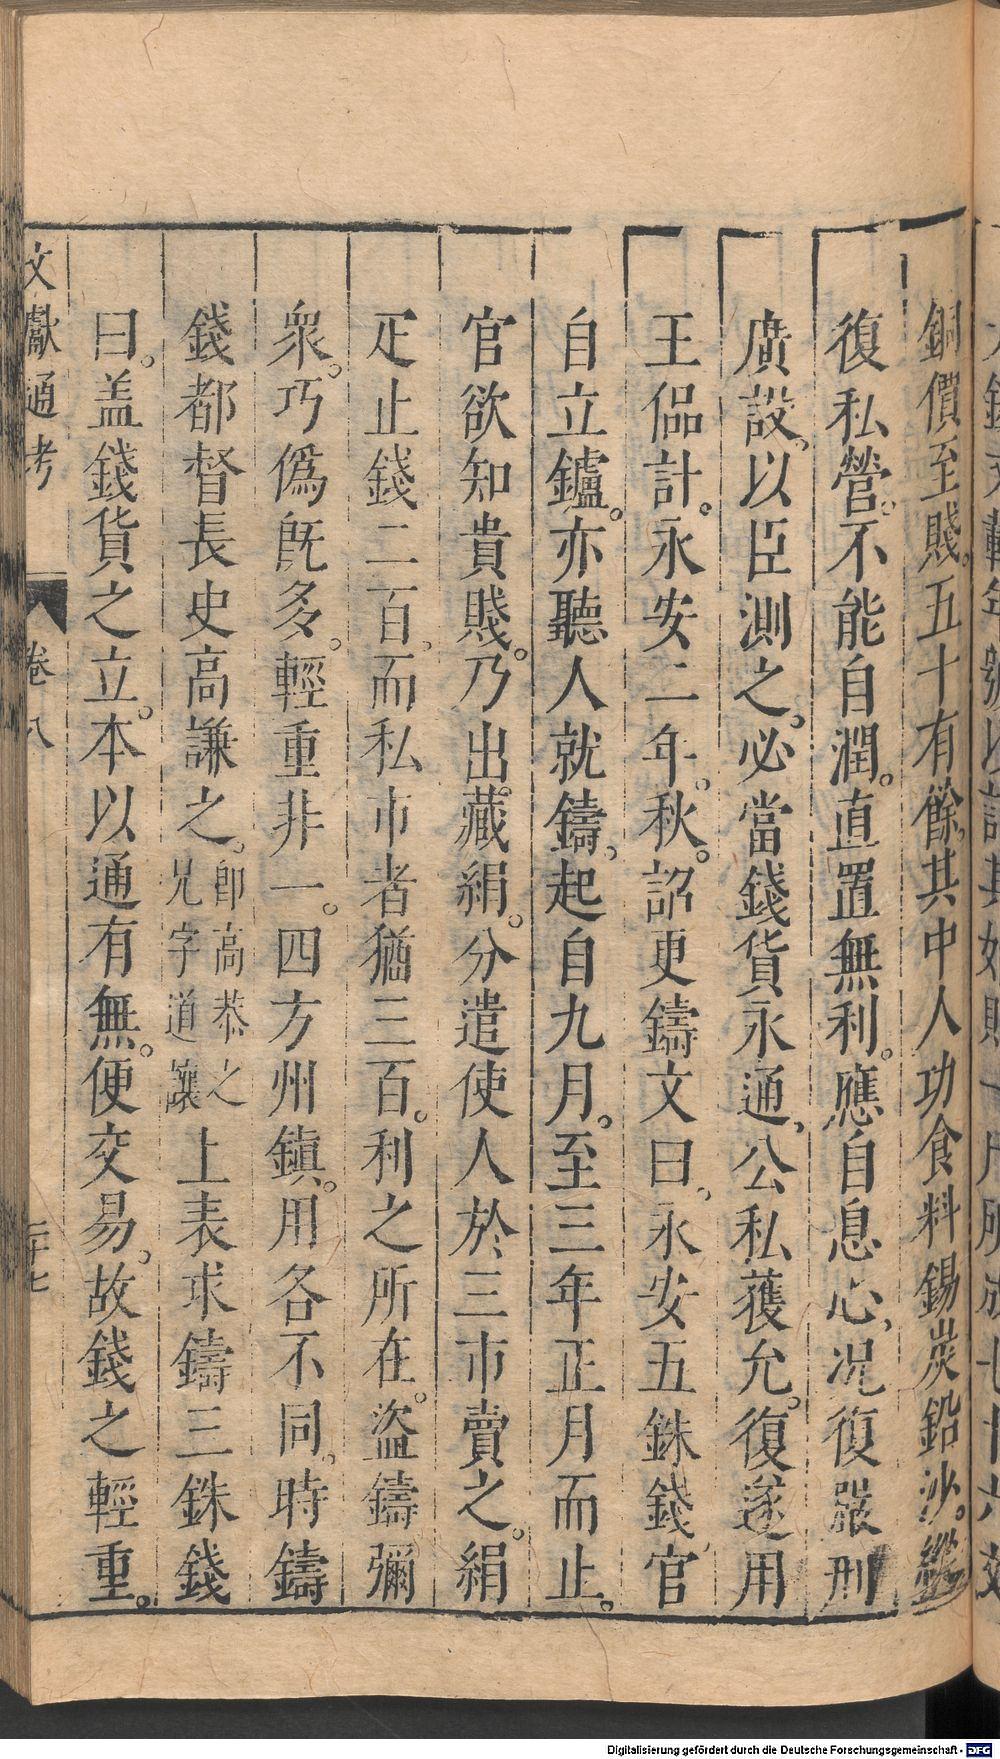 銅價至賤。五十有餘。其中人功食料錫炭鉛沙。縱
復私營。不能自潤。直置無利。應自息心。況復嚴刑
廣設。以臣測之。必當錢貨永通。公私獲允。復遂用
王偘計。永安二年。秋。詔更鑄文曰。永安五銖錢。官
自立鑪。亦聽人就鑄。起自九月。至三年正月而止。
官欲知貴賤。乃出藏絹。分遣使人於三市賣之。絹
疋止錢二百。而私市者猶三百。利之所在。盜鑄彌
衆。巧僞旣多。輕重非一。四方州鎮。用各不同。時鑄
錢都督長史高謙之。卽高恭之兄字道讓上表求鑄三銖錢
曰。盖錢貨之立。本以通有無。便交易。故錢之輕重。
文獻通考 卷八 二十七
Digitalisierung gefördert durch die Deutsche Forschungsgemeinschaft - DFG